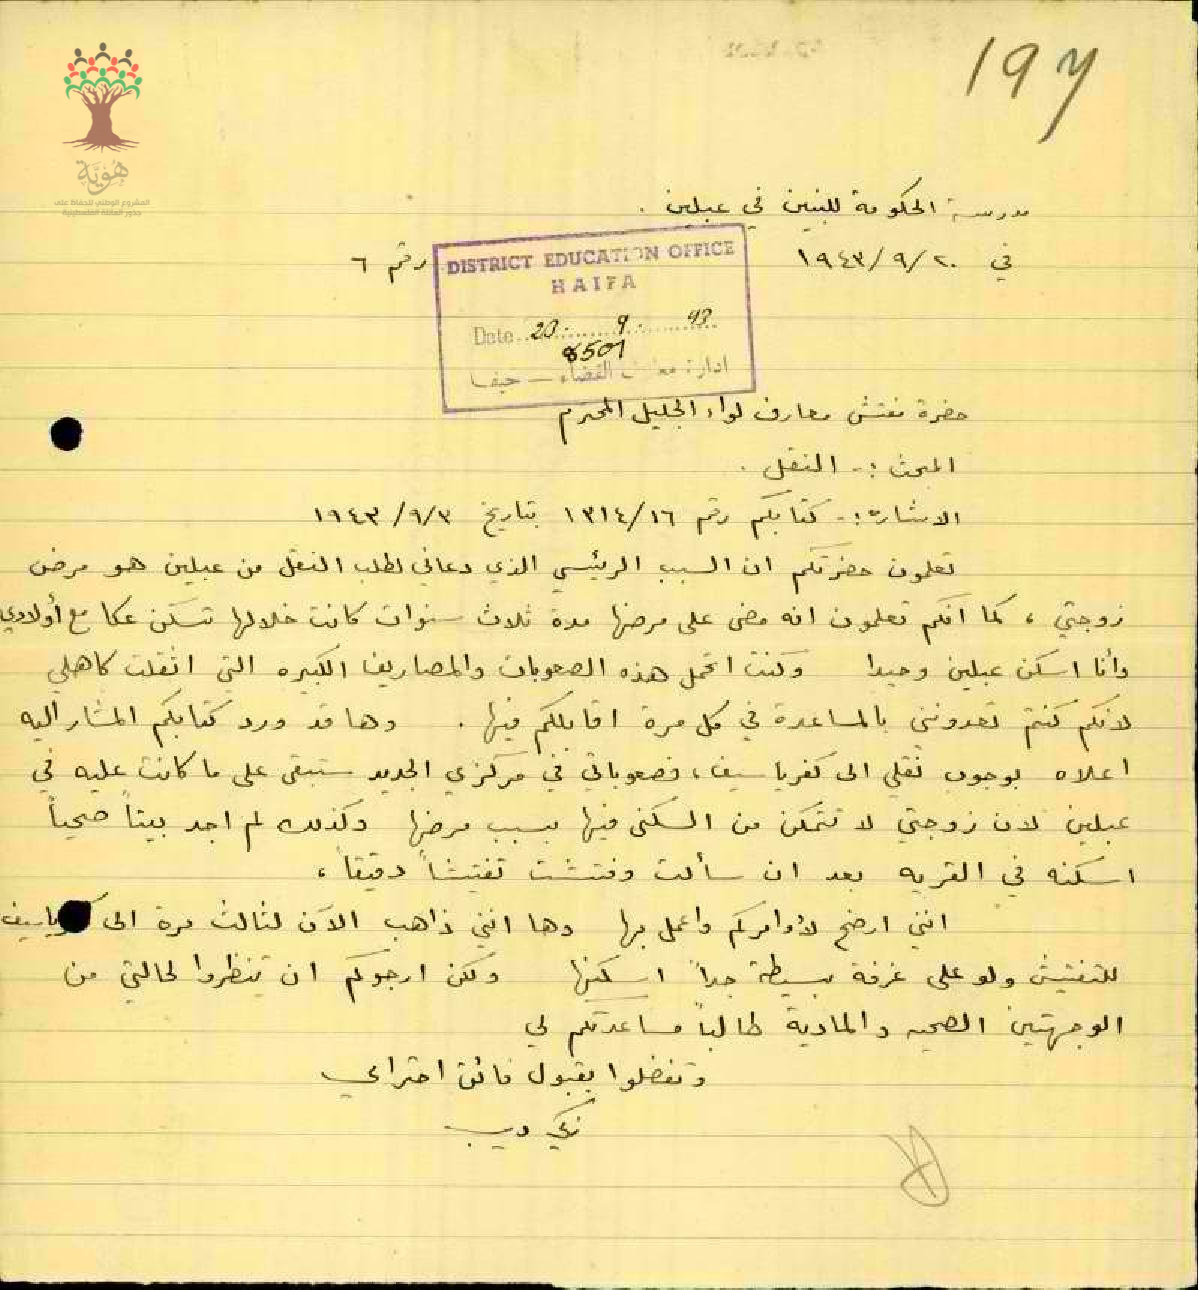 197
هُوِيَّة
المشروع الوطني للحفاظ على
جذور العائلة الفلسطينية
مدرسة الحكومة للبنين في عبلين .
في ٢٠/٩/١٩٤٣
رقم ٦
DISTRICT EDUCATION OFFICE
HAIFA
Date 20. 9. 43
8501
ادارة معارف القضاء — حيفا
حضرة مفتش معارف لواء الجليل المحترم
المبحث :- النقل .
الاشاره :- كتابكم رقم ١٣١٤/١٦ بتاريخ ١٩٤٣/٩/٣
تعلمون حضرتكم ان السبب الرئيسي الذي دعاني لطلب النقل من عبلين هو مرض
زوجتي ، كما انكم تعلمون انه مضى على مرضها مدة ثلاث سنوات كانت خلالها تسكن عكا مع أولادي
وأنا اسكن عبلين وحيدا وكنت اتحمل هذه الصعوبات والمصاريف الكبيره التي اثقلت كاهلي
لانكم كنتم تعدونني بالمساعدة في كل مرة اقابلكم فيها . وها قد ورد كتابكم المشار اليه
اعلاه بوجوب نقلي الى كفرياسيف ، فصعوباتي في مركزي الجديد ستبقى على ما كانت عليه في
عبلين لان زوجتي لا تتمكن من السكنى فيها بسبب مرضها وكذلك لم اجد بيتاً صحياً
اسكنه في القريه بعد ان سألت وفتشت تفتيشاً دقيقاً ،
انني ارضخ لأوامركم واعمل بها وها انني ذاهب الآن لثالث مرة الى كفرياسيف
للتفتيش ولو على غرفة بسيطة جداً اسكنها ولكن ارجوكم ان تنظروا لحالتي من
الوجهتين الصحيه والمادية طالباً مساعدتكم لي
وتفضلوا بقبول فائق احترامي
زكي ديب